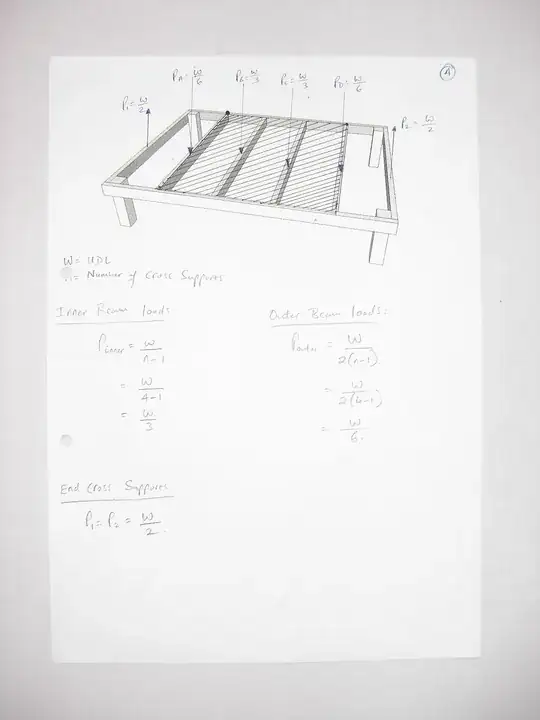 ④
P_A = W/6
P_B = W/3
P_C = W/3
P_D = W/6
P₁ = W/2
P₂ = W/2
W = UDL
n = Number of Cross Supports
Inner Beam loads:
P_inner = W/n-1
= W/4-1
= W/3
Outer Beam loads:
P_outer = W/2(n-1)
= W/2(4-1)
= W/6.
End Cross Supports
P₁ = P₂ = W/2.